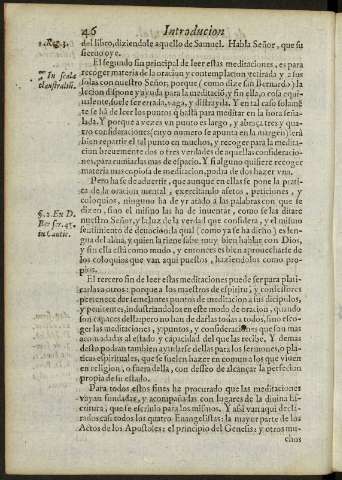 46 Introducion
1. Reg. 3.
del libro, diziendole aquello de Samuel. Habla Señor, que su
sieruo oye.
El segundo fin principal de leer estas meditaciones, es para
In scala
claustraliũ.
recoger materia de la oracion y contemplacion retirada y a sus
solas con nuestro Señor, porque (como dize san Bernardo) la
lecion dispone y ayuda para la meditaciõ, y sin ella, o cosa equi-
ualente, suele ser errada, vaga, y distrayda. Y en tal caso solamẽ
te se ha de leer los puntos q̃ basta para meditar en la hora seña-
lada. Y porque a vezes un punto es largo, y abraça tres y qua-
tro consideraciones (cuyo numero se apunta en la margen) serà
bien repartir el tal punto en muchos, y recoger para la medita-
cion breuemente dos o tres verdades de aquellas consideracio-
nes, para rumiarlas mas de espacio. Y si alguno quisiere recoger
materia mas copiosa de meditacion, podra de dos hazer una.
Pero ha se de aduertir, que aunque en ellas se pone la prati-
ca de la oracion mental, exercitando afectos, peticiones, y
coloquios, ninguno ha de yr atado a las palabras con que se
§. 2. Ex D.
Ber. ser. 45.
in Cantic.
dizen, sino el mismo las ha de inuentar, como se las ditare
nuestro Señor, y la luz de la verdad que considera, y el mismo
sentimiento de deuocion: la qual (como ya se ha dicho) es len-
gua del alma, y quien la tiene sabe muy bien hablar con Dios,
y sin ella està como mudo, y entonces es bien aprouecharse de
los coloquios que van aqui puestos, haziendolos como pro-
pios.
El tercero fin de leer estas meditaciones puede ser para plati-
carlas a otros: porque a los maestros de espiritu, y confessores
pertenece dar semejantes puntos de meditacion a sus dicipulos,
y penitentes, industriandolos en este modo de oracion, quando
son capaces della, pero no han de darlas todas a todos, sino esco-
ger las meditaciones, y puntos, y consideraciones que son mas
acomodadas al estado y capacidad del que las recibe. Y demas
desto podran tambien ayudarse dellas para los sermones, o pla-
ticas espirituales, que se suelen hazer en comun a los que viuen
en religion, o fuera della, con desseo de alcançar la perfecion
propia de su estado.
Para todos estos fines he procurado que las meditaciones
vayan fundadas, y acompañadas con lugares de la diuina Es-
critura, que se escriuio para los mismos. Y assi van aqui decla-
rados casi todos los quatro Euangelistas: la mayor parte de los
Actos de los Apostoles: el principio del Genesis: y otros mu-
chos